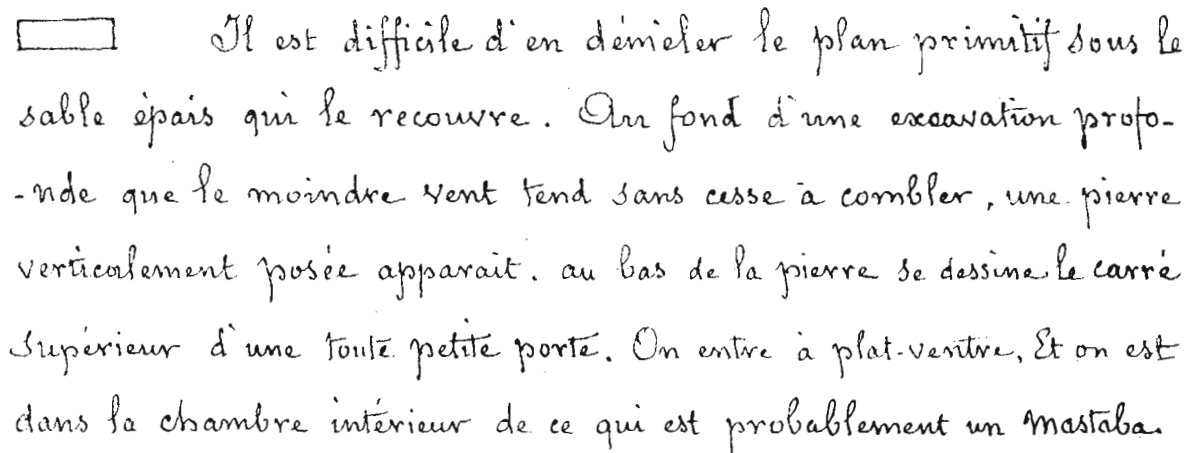 Il est difficile d'en démêler le plan primitif sous le
sable épais qui le recouvre. Au fond d'une excavation profo-
-nde que le moindre vent tend sans cesse à combler, une pierre
verticalement posée apparait. au bas de la pierre se dessine le carré
supérieur d'une toute petite porte. On entre à plat-ventre, Et on est
dans la chambre intérieur de ce qui est probablement un Mastaba.